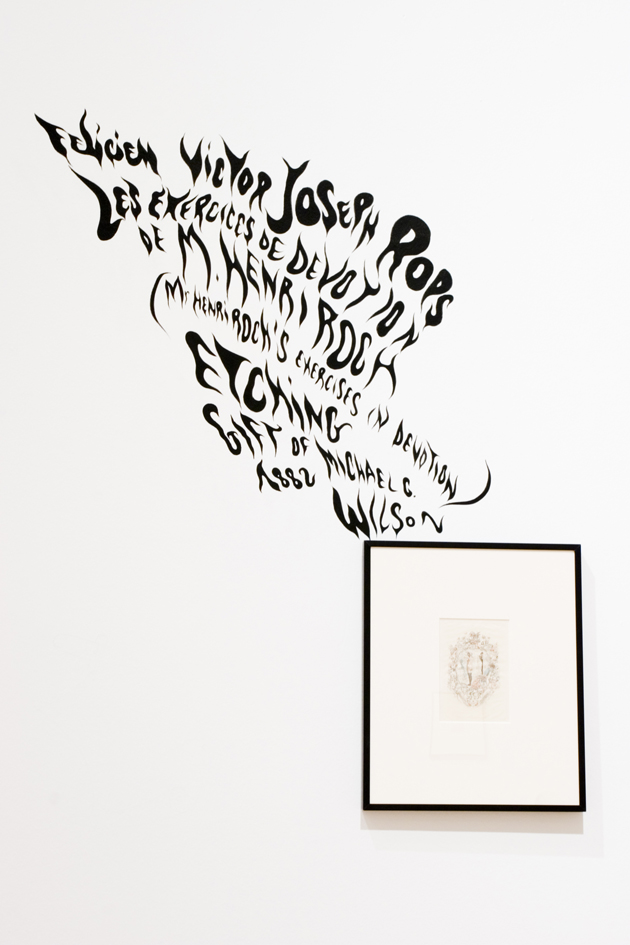 FELICIEN VICTOR JOSEPH ROPS
LES EXERCICES DE DEVOTION
DE M. HENRI ROCH
(Mr HENRI ROCH'S EXERCISES IN DEVOTION)
ETCHING
GIFT OF MICHAEL G.
1882 WILSON